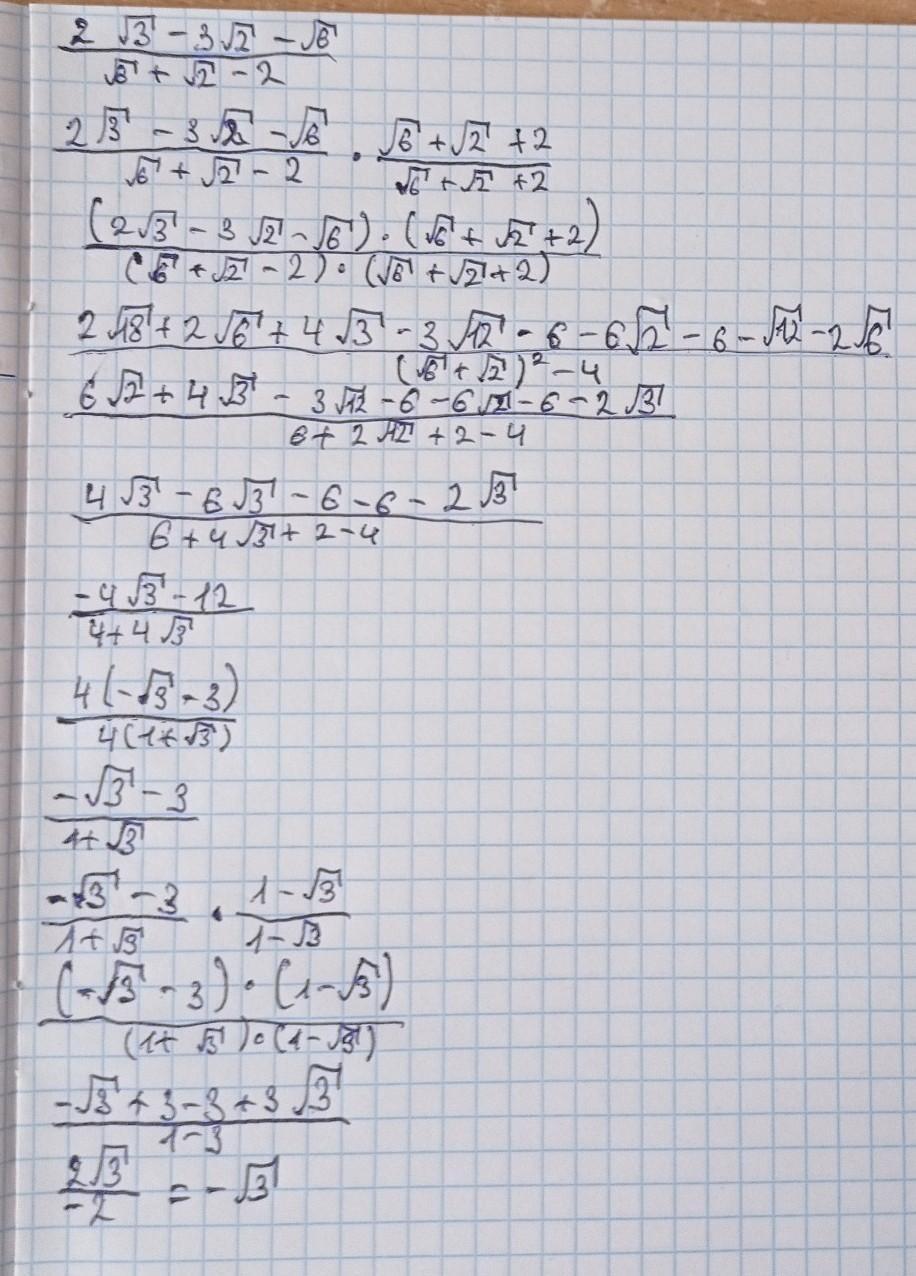 2√3 - 3√2 - √6
√6 + √2 - 2
2√3 - 3√2 - √6 · √6 + √2 + 2
√6 + √2 - 2 √6 + √2 + 2
(2√3 - 3√2 - √6) · (√6 + √2 + 2)
(√6 + √2 - 2) · (√6 + √2 + 2)
2√18 + 2√6 + 4√3 - 3√12 - 6 - 6√2 - 6 - √12 - 2√6
(√6 + √2)² - 4
6√2 + 4√3 - 3√12 - 6 - 6√2 - 6 - 2√3
6 + 2√12 + 2 - 4
4√3 - 6√3 - 6 - 6 - 2√3
6 + 4√3 + 2 - 4
-4√3 - 12
4 + 4√3
4(-√3 - 3)
4(1 + √3)
-√3 - 3
1 + √3
-√3 - 3 · 1 - √3
1 + √3 1 - √3
(-√3 - 3) · (1 - √3)
(1 + √3) · (1 - √3)
-√3 + 3 - 3 + 3√3
1 - 3
2√3 = -√3
-2